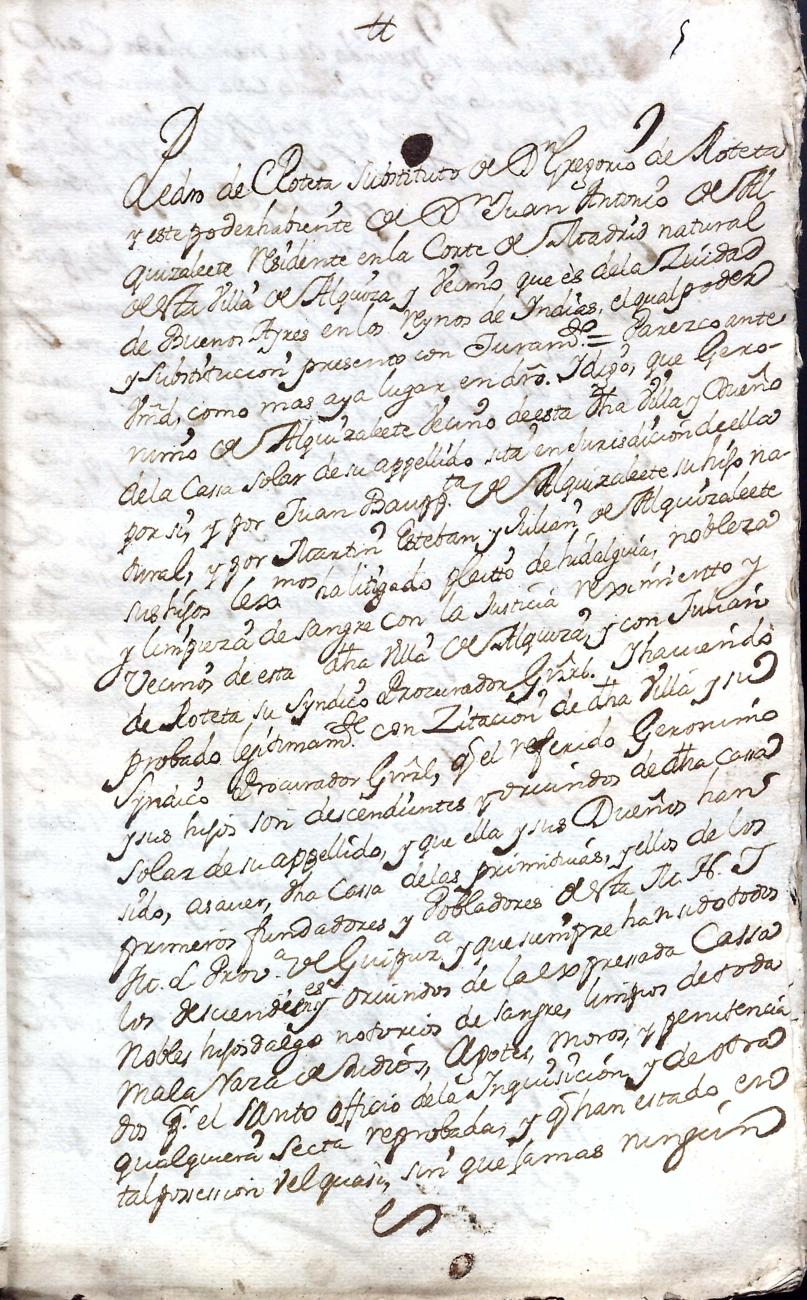 5
Pedro de Roteta substituto de Dn Gregorio de Roteta
y este poderhabiente de Dn Juan Antonio de Al-
quizaleete residente en la Corte de Madrid natural
de esta villa de Alquiza, y vecino que es de la Ziudad
de Buenos Ayres en los reynos de Indias, el qual poder
y substitucion presento con Juramto = Parezco ante
Vmd, como mas aya lugar en dro. I digo, que Gero-
nimo de Alquizaleete vecino de esta dha Villa y Dueño
de la Cassa solar de su appellido sita en Jurisdicion de ella
por si, y por Juan Baupta de Alquizaleete su hijo na-
tural, y por Martin Esteban, y Julian de Alquizaleete
sus hijos lexmos ha litigado pleitto de hidalguia, nobleza
y limpieza de sangre con la Justicia reximiento y
Vecinos de esta dha Villa de Alquiza, y con Julian
de Roteta su Syndico Procurador Gñrl. Y haviendo
probado lejitimamte con Zitacion de dha Villa y su
Syndico Procurador Gñrl, q el referido Geronimo
y sus hijos son descendientes y oriundos de dha Cassa
solar de su appellido, y que ella y sus Dueños han
sido, asaver, dha Cassa de las primitivas, y ellos de los
primeros fundadores y Pobladores de esta M. N. I
M. L. Prova de Guipuza y que siempre han sido todos
los descendientes y oriundos de la expressada Cassa
Nobles hijosdalgo notorios de sangre, limpios de toda
mala raza de Judios, Agotes, moros, y penitencia-
dos pr el santo officio de la Inquisición y de otra
qualquiera secta reprobada, y q han estado en
tal possession vel quasi, sin que jamas ningun